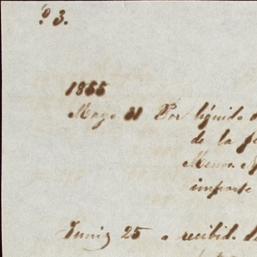 P 3.
1855
Mayo 31 Por líquido d
de la
Menos
importe
Junio 25 " recibido de